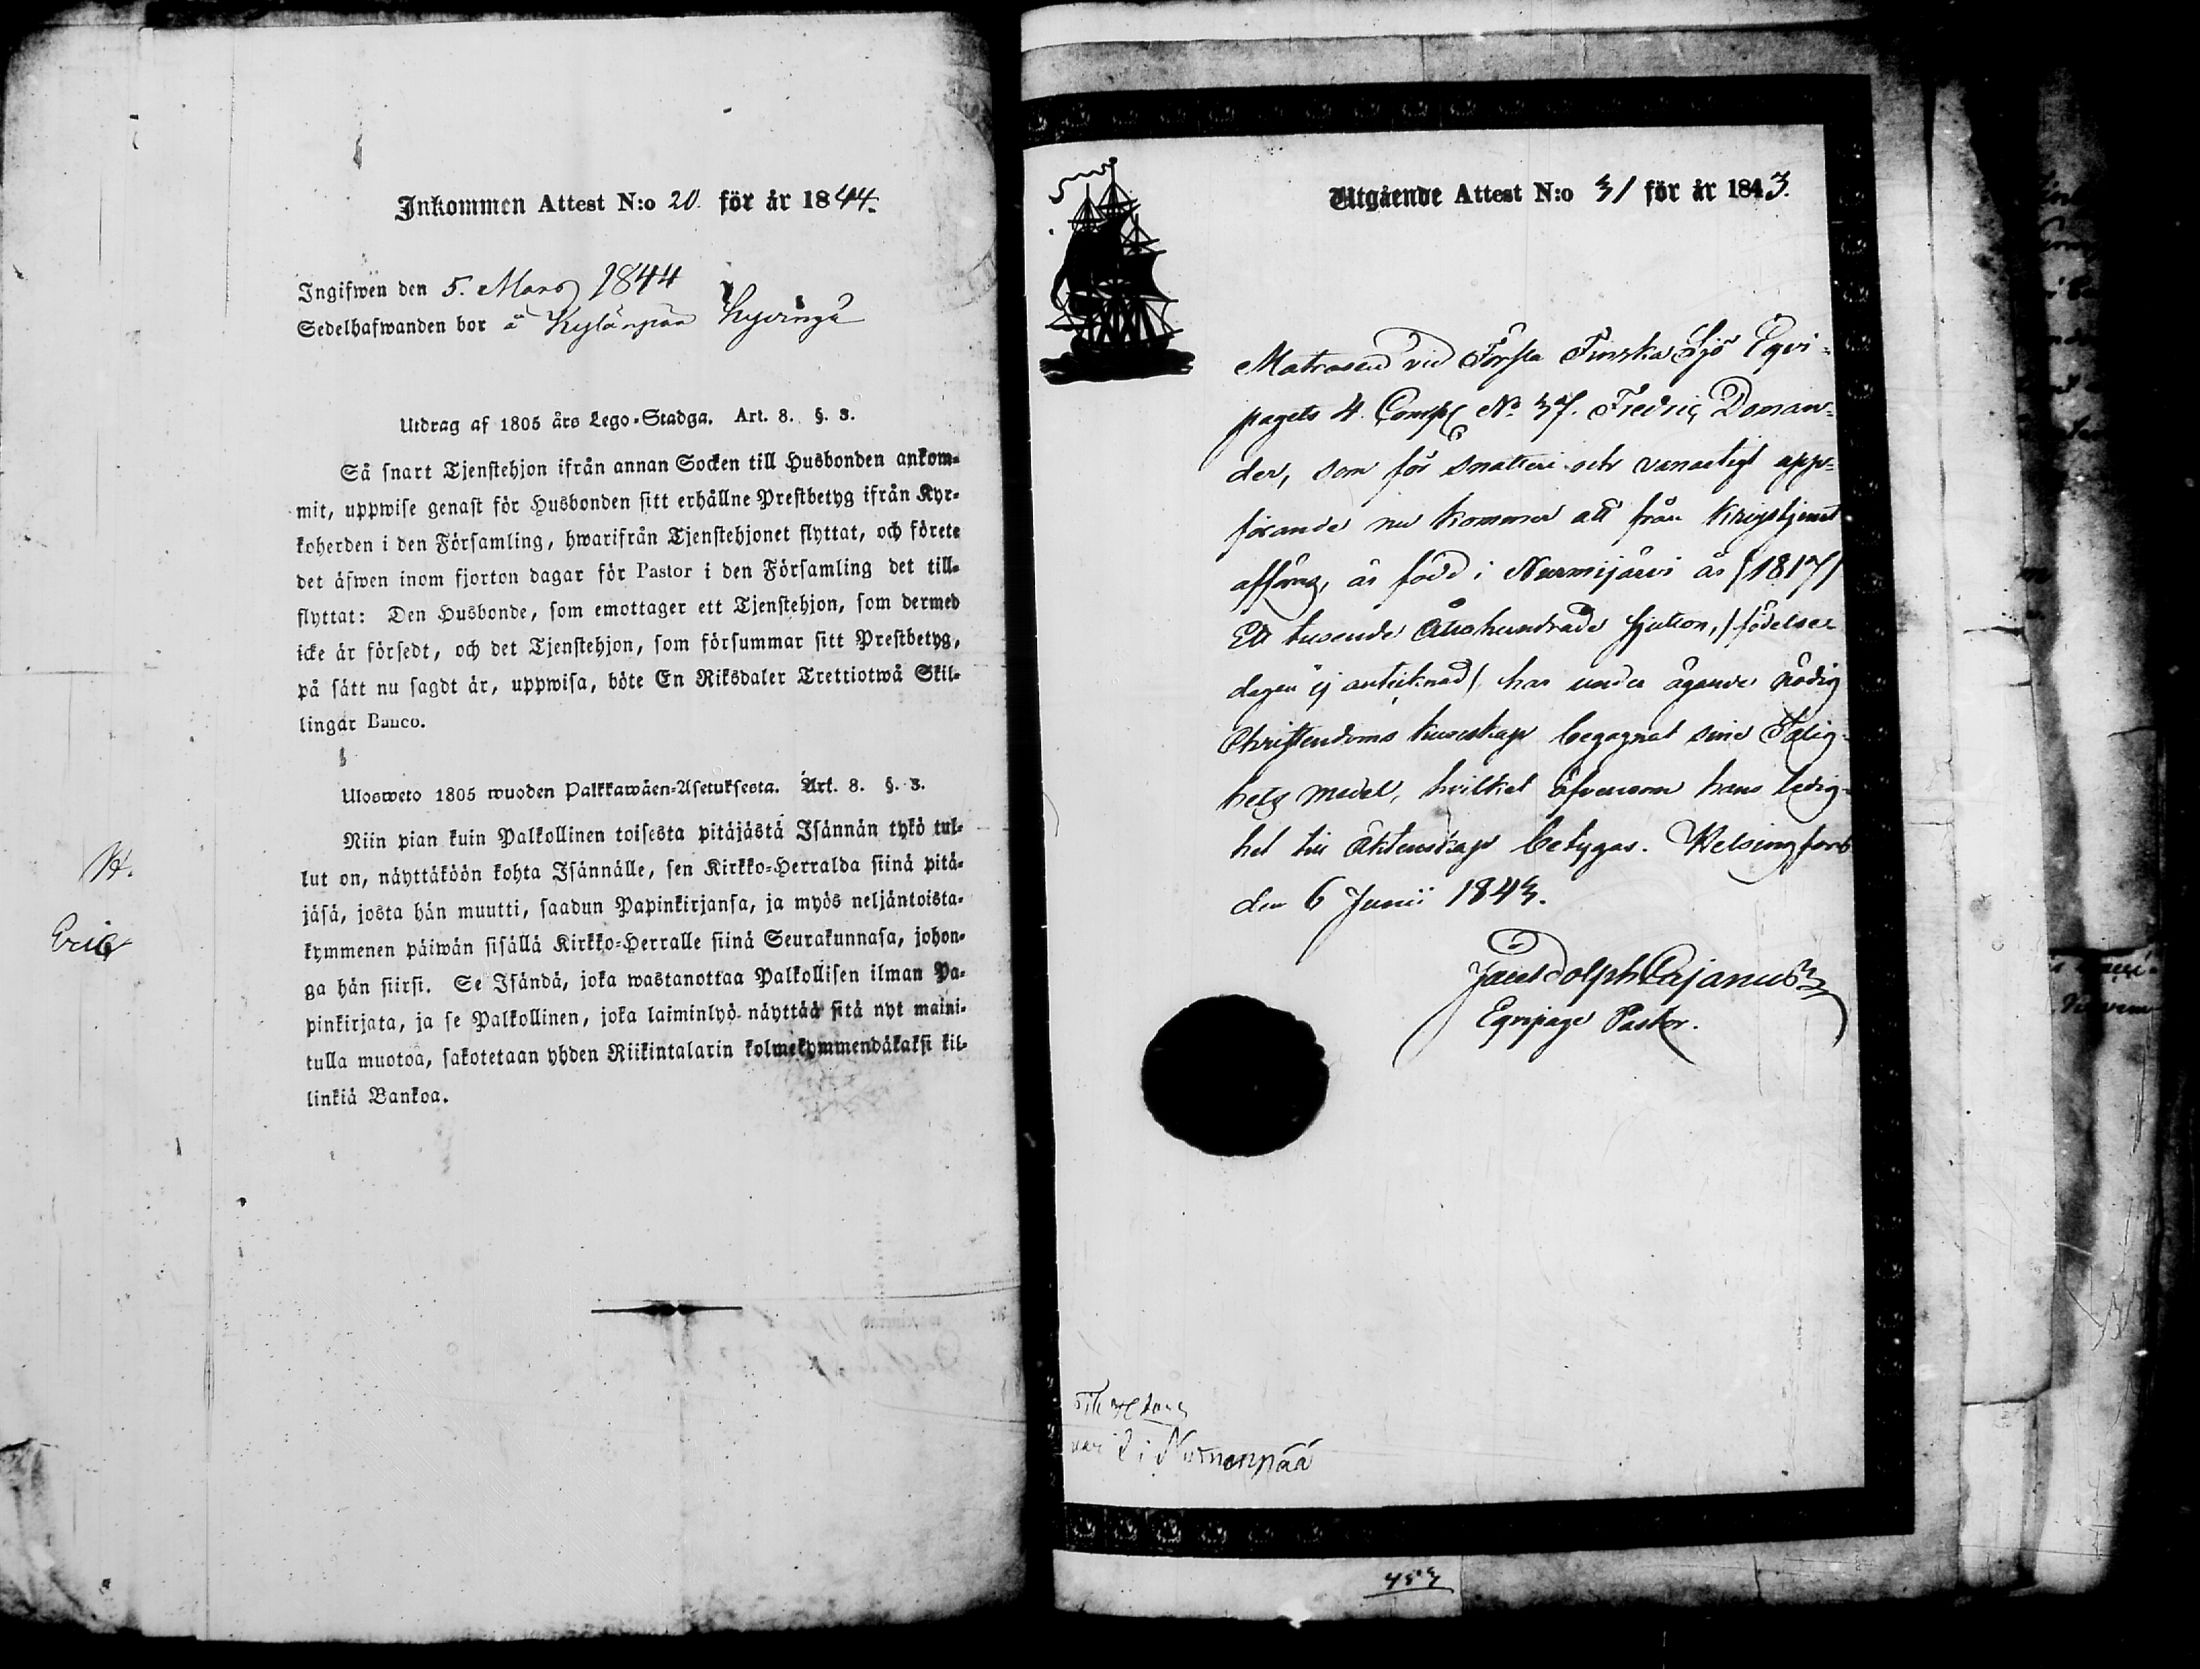 Inkommen Attest N:o 20. för år 1844.
Ingifwen den 5. Mars 1844
Sedelhafwanden bor å Kylänpää Hyvingä
Utdrag af 1805 års Lego-Stadga. Art. 8. §. 3.
Så snart Tjenstehjon ifrån annan Socken till Husbonden ankom-
mit, uppwise genast för Husbonden sitt erhållne Prestbetyg ifrån Kyr-
koherden i den Församling, hwarifrån Tjenstehjonet flyttat, och förete
det äfwen inom fjorton dagar för Pastor i den Församling det till-
flyttat: Den Husbonde, som emottager ett Tjenstehjon, som dermed
icke är försedt, och det Tjenstehjon, som försummar sitt Prestbetyg,
på sätt nu sagdt är, uppwisa, böte En Riksdaler Trettiotwå Skil-
lingar Banco.
Ulosweto 1805 wuoden Palkkawäen-Asetuksesta. Art. 8. §. 3.
Niin pian kuin Palkollinen toisesta pitäjästä Isännän tykö tul-
lut on, näyttäköön kohta Isännälle, sen Kirkko-Herralda siinä pitä-
jäsä, josta hän muutti, saadun Papinkirjansa, ja myös neljäntoista-
kymmenen päiwän sisällä Kirkko-Herralle siinä Seurakunnasa, johon-
ga hän siirsi. Se Isändä, joka wastanottaa Palkollisen ilman Pa-
pinkirjata, ja se Palkollinen, joka laiminlyö näyttää sitä nyt maini-
tulla muotoa, sakotetaan yhden Riikintalarin kolmekymmendäkaksi kil-
linkiä Bankoa.
H.
Eric
Utgående Attest N:o 31 för år 1843.
Matrosen vid Första Finska Sjö Eqvi-
pagets 4. Comp. No 37. Fredric Donan-
der, som för snatteri och vanartigt upp-
förande nu kommer att från Krigstjenst
afgång, är född i Nurmijärvi år /1817/
Ett tusende Åttahundrade sjutton, /födelse
dagen ej antecknad/ har under ägande nödig
Christendoms kunskap begagnat sine Salig-
hets medel, hvilket äfvensom hans ledig-
het till Äktenskap betygas. Helsingfors
den 6 Junii 1843.
Jacob Dolph Cajanus
Eqvipage Pastor.
i Nurmenpää
453